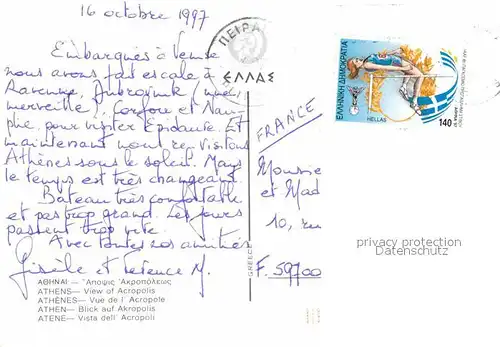 16 octobre 1997
Embarqués à Venise
nous avons fait escale à
Ravenne, Dubrovnik (une
merveille), Corfou et Nau-
plie pour visiter Epidaure. Et
maintenant nous re visitons
Athènes sous le soleil. Mais
le temps est très changeant
Bateau très confortable
et pas trop grand. Les jours
passent trop vite.
Avec toutes nos amitiés
Gisèle et Terence M.
ΑΘΗΝΑΙ — Ἄποψις Ἀκροπόλεως
ATHENS— View of Acropolis
ATHÈNES— Vue de l' Acropole
ATHEN — Blick auf Akropolis
ATENE— Vista dell' Acropoli
GREECE
ΠΕΙΡΑ
ΕΛΛΑΣ
ΕΛΛΗΝΙΚΗ ΔΗΜΟΚΡΑΤΙΑ
HELLAS
140
FRANCE
Monsie
et Mad
10, ru
F. 59700
privacy protection
Datenschutz